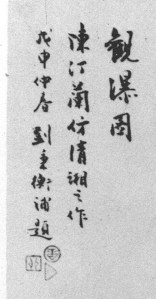 觀瀑圖
陳汀蘭仿清湘之作
戊申仲春劉秉衡補題